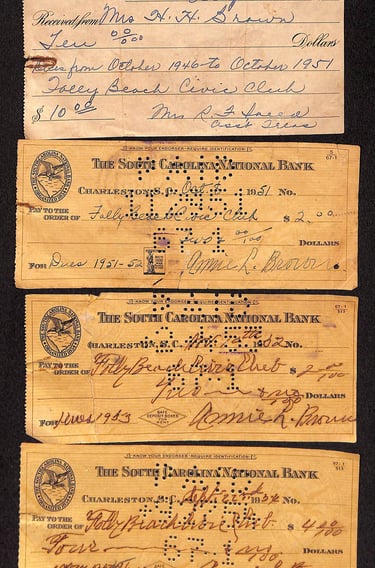 Received from Mrs H. H. Brown
Ten 00/100 Dollars
Dues from October 1946 to October 1951
Folly Beach Civic Club
$ 10 00
Mrs R F
Asst Treas
KNOW YOUR ENDORSER-REQUIRE IDENTIFICATION
67-1
THE SOUTH CAROLINA NATIONAL BANK
CHARLESTON, S. C. Oct 1951 No.
PAY TO THE ORDER OF Folly Beach Civic Club $ 2.00
00/100 DOLLARS
FOR Dues 1951-52 Annie L. Brown
KNOW YOUR ENDORSER-REQUIRE IDENTIFICATION
67-1
THE SOUTH CAROLINA NATIONAL BANK
CHARLESTON, S. C. 1952 No.
PAY TO THE ORDER OF Folly Beach Civic Club $ 2 00/100
Two no/100 DOLLARS
FOR Dues 1953 SAFE DEPOSIT BOXES FOR RENT Annie L. Brown
KNOW YOUR ENDORSER-REQUIRE IDENTIFICATION
67-1
THE SOUTH CAROLINA NATIONAL BANK
CHARLESTON, S. C. No.
PAY TO THE ORDER OF Folly Beach Civic Club $ 4 00/100
Four no/100 DOLLARS